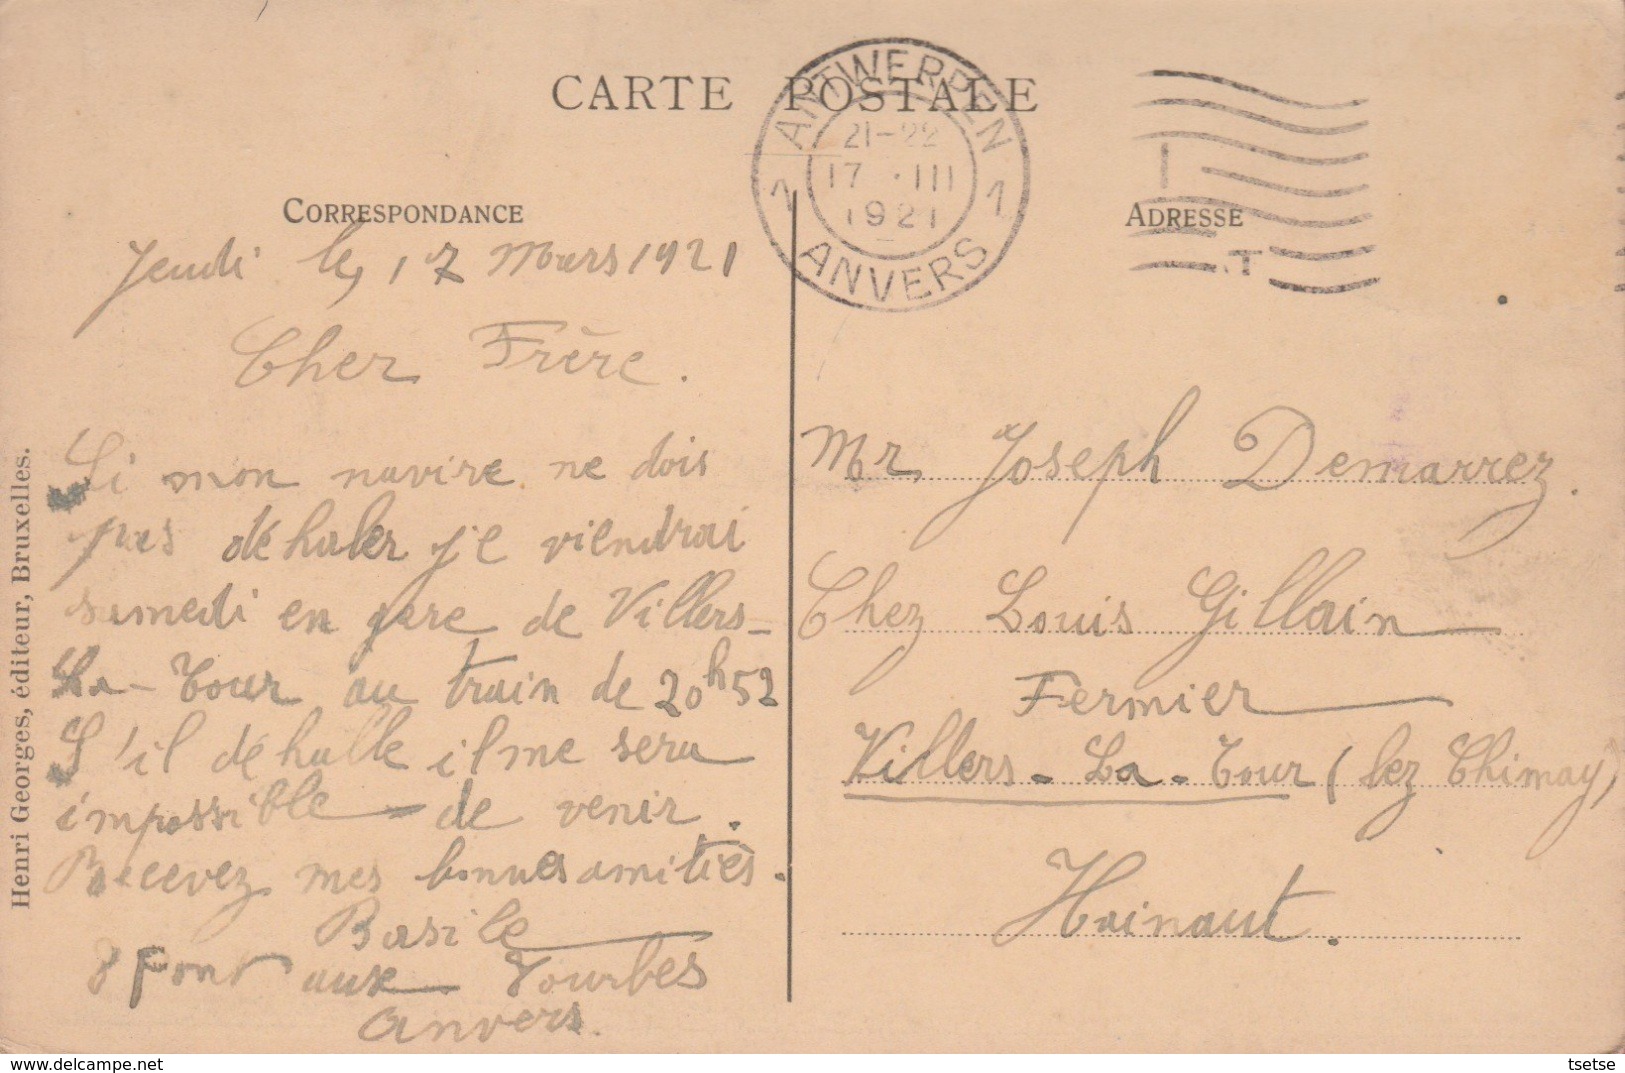 CARTE POSTALE
ANTWERPEN
21-22
17 III
1921
1 1
ANVERS
CORRESPONDANCE
ADRESSE
Jeudi le, 17 Mars 1921
Cher Frère.
Si mon navire ne dois
pas déhaler je viendrai
samedi en gare de Villers-
La-Tour au train de 20h52
S'il déhalle il me sera
impossible de venir.
Recevez mes bonnes amitiés.
Basile
8 Pont aux Tourbes
Anvers.
Mr Joseph Demarrez.
Chez Louis Gillain
Fermier
Villers-La-Tour (lez Chimay)
Hainaut.
Henri Georges, éditeur, Bruxelles.
www.delcampe.net
tsetse